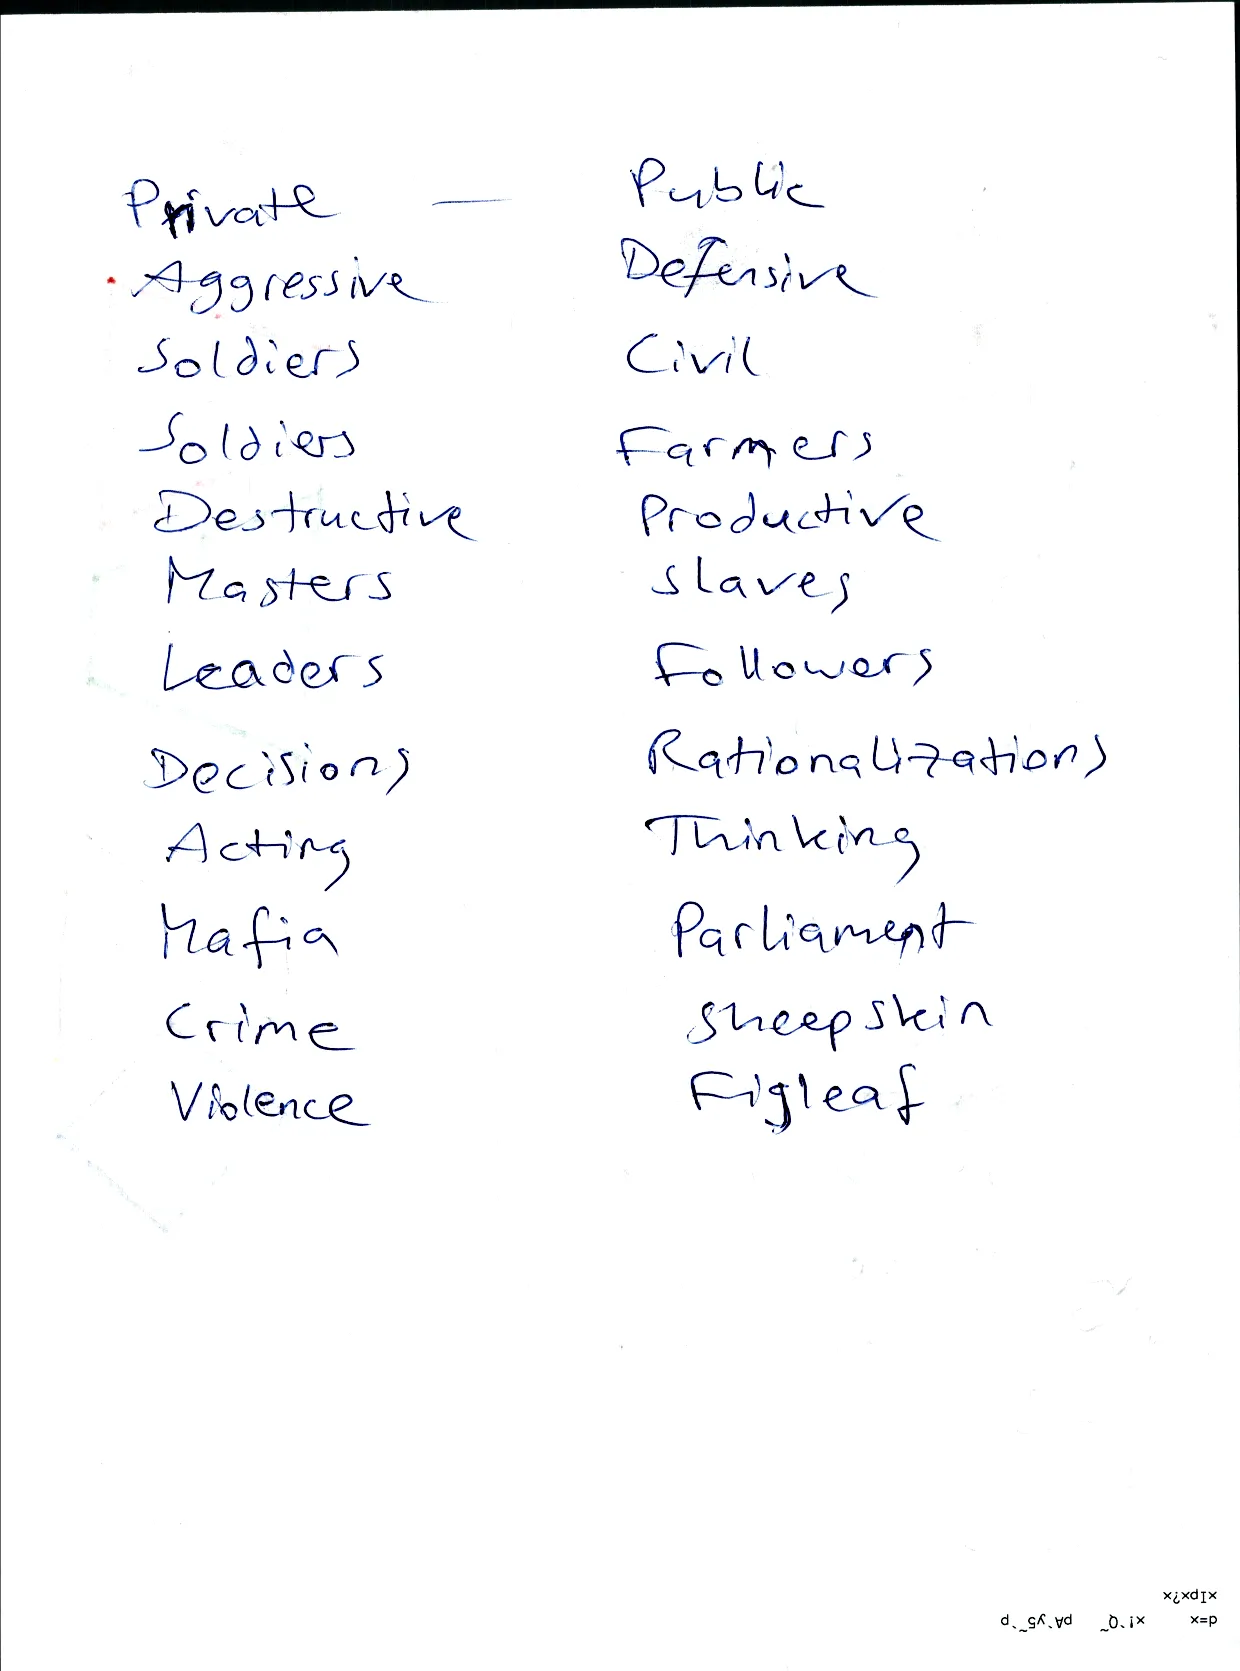 Private — Public
Aggressive Defensive
Soldiers Civil
Soldiers Farmers
Destructive Productive
Masters Slaves
Leaders Followers
Decisions Rationalizations
Acting Thinking
Mafia Parliament
Crime Sheepskin
Violence Figleaf